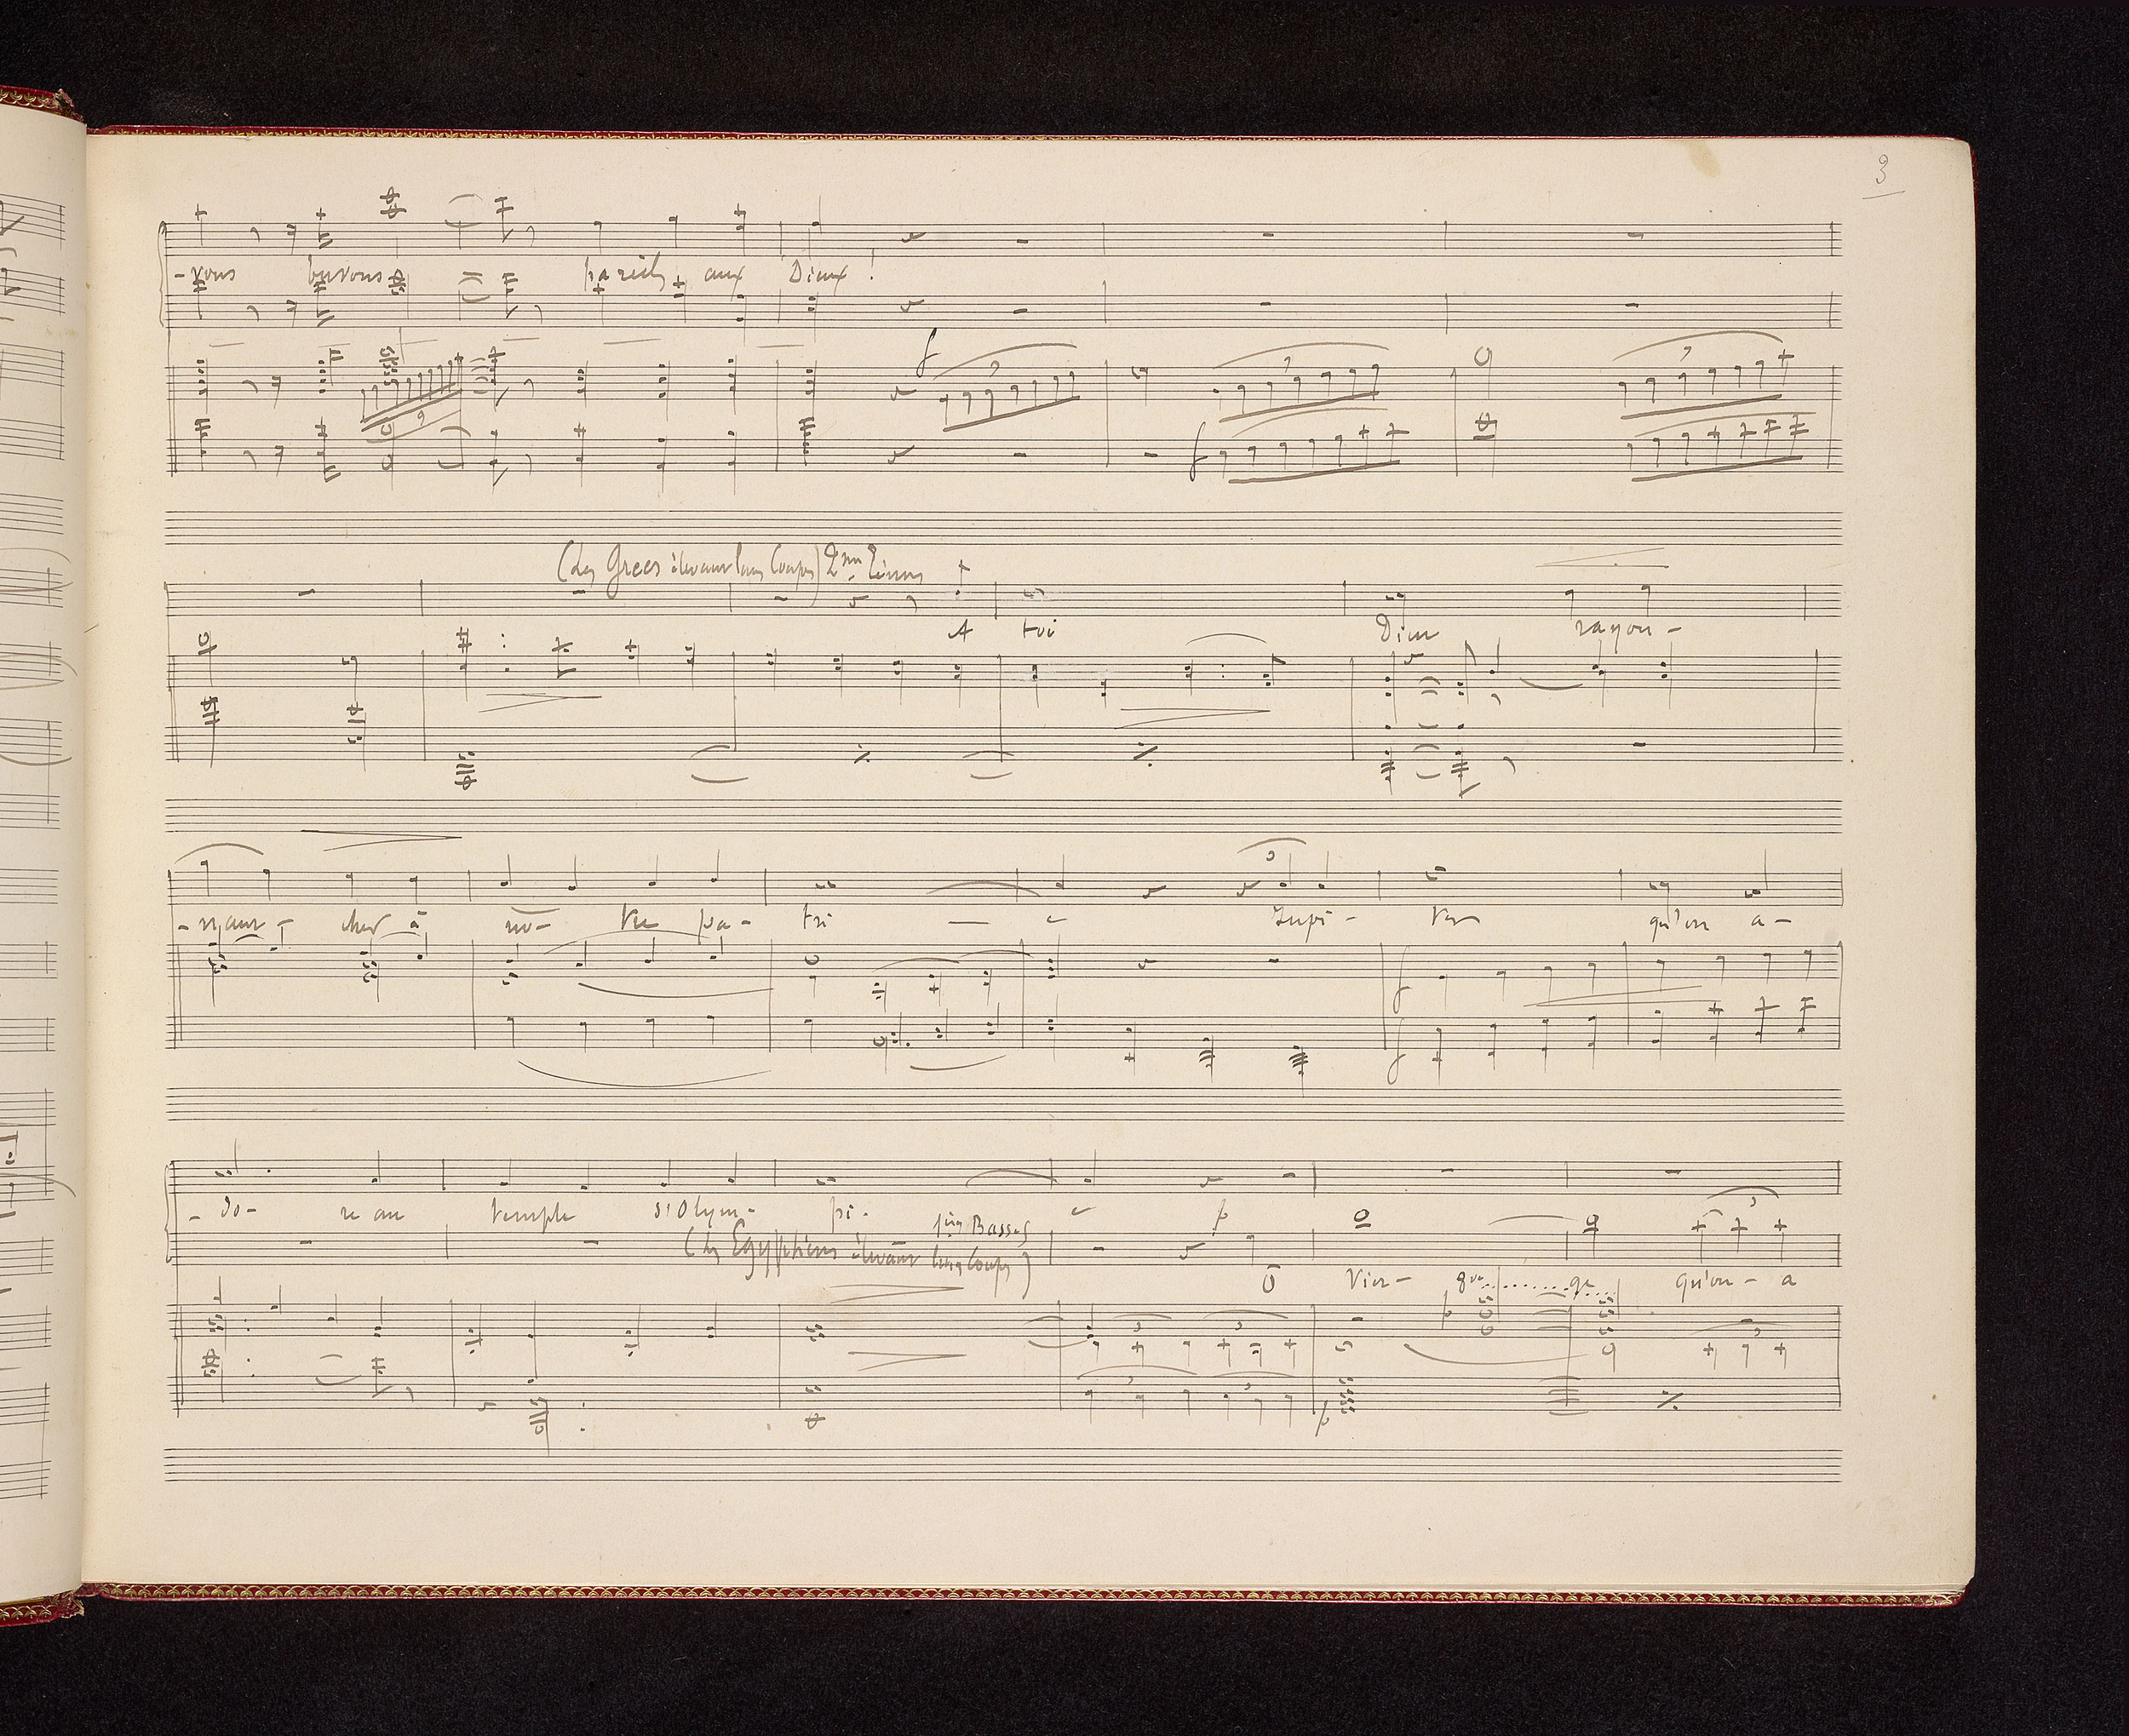 3
-vons buvons pareils aux Dieux !
f
9
f
(Les Grecs élevant leurs Coupes) 2ms Ténors
A toi Dieu rayon-
3
-nant- cher à no- tre pa- tri — e Jupi- ter qu'on a-
f
f
- do- re au temple d'Olym- pi- e
p
1ères Basses
(les Egyptiens élevant leurs Coupes)
Ô Vier- ge qu'on - a
8va
p
3 3 3
3 3
p